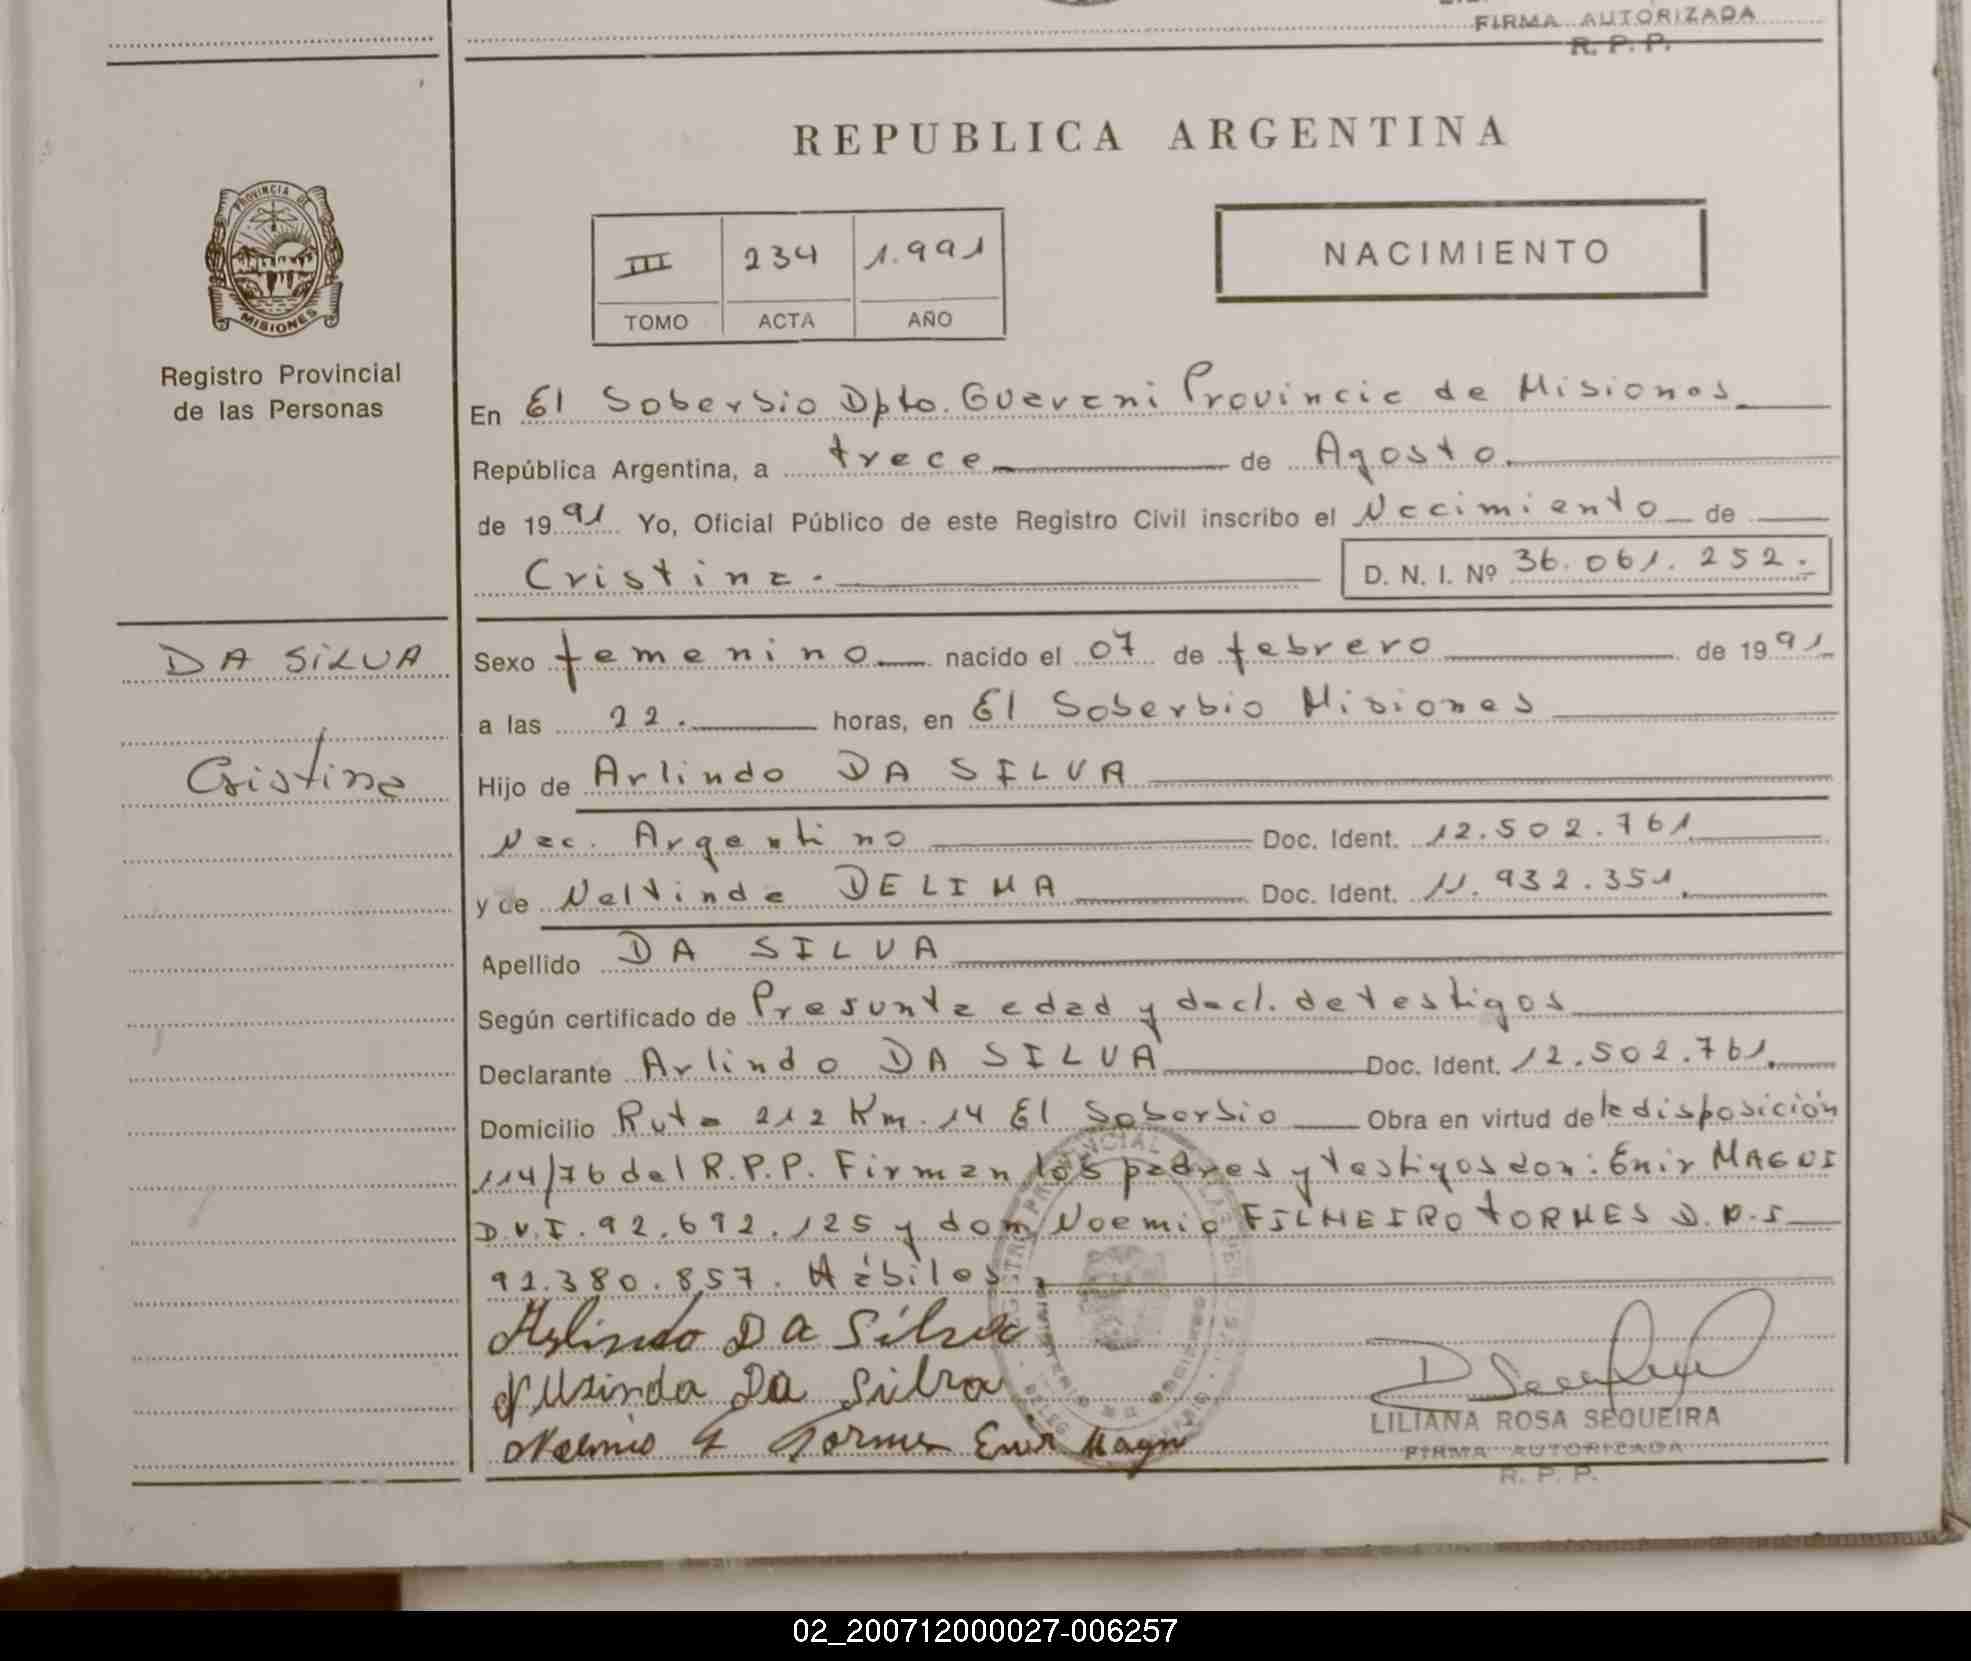 FIRMA AUTORIZADA
R. P. P.
REPUBLICA ARGENTINA
PROVINCIA DE
MISIONES
Registro Provincial
de las Personas
III 234 1.991
TOMO ACTA AÑO
NACIMIENTO
En El Soberbio Dpto. Guarani Provincia de Misiones
República Argentina, a trece de Agosto
de 1991 Yo, Oficial Público de este Registro Civil inscribo el Nacimiento de
Cristina. D. N. I. Nº 36.061.252.
DA SILVA
Cristina
Sexo femenino nacido el 07 de febrero de 1991
a las 22. horas, en El Soberbio Misiones
Hijo de Arlindo DA SILVA
Nac. Argentino Doc. Ident. 12.502.761
y de DELIMA Doc. Ident. 11.932.351.
Apellido DA SILVA
Según certificado de Presunta edad y decl. de testigos
Declarante Arlindo DA SILVA Doc. Ident. 12.502.761.
Domicilio Ruta 212 Km. 14 El Soberbio Obra en virtud de la disposición
114/76 del R.P.P. Firman los padres y testigos don: Enir MAGUI
D.N.I. 92.692.125 y don Noemio FILHEIRO TORMES D.N.I
92.380.857. Hábiles.
Arlindo Da Silva
Da Silva
Noemio F Tormes Enir Magui
LILIANA ROSA SEQUEIRA
FIRMA AUTORIZADA
R. P. P.
02_200712000027-006257